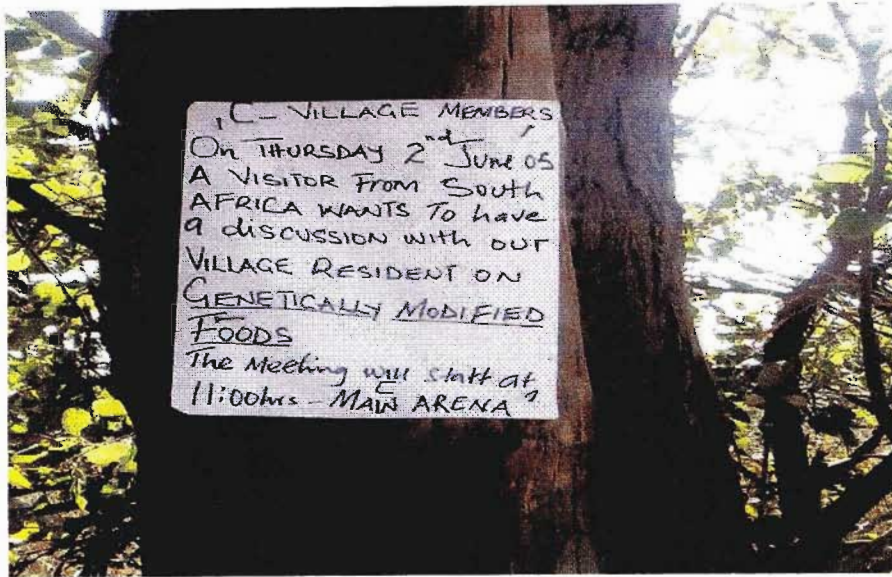 C- VILLAGE MEMBERS
On THURSDAY 2nd June 05
A VISITOR FROM SOUTH
AFRICA WANTS To have
a discussion with our
VILLAGE RESIDENT ON
GENETICALLY MODIFIED
FOODS
The Meeting will start at
11:00hrs - MAIN ARENA